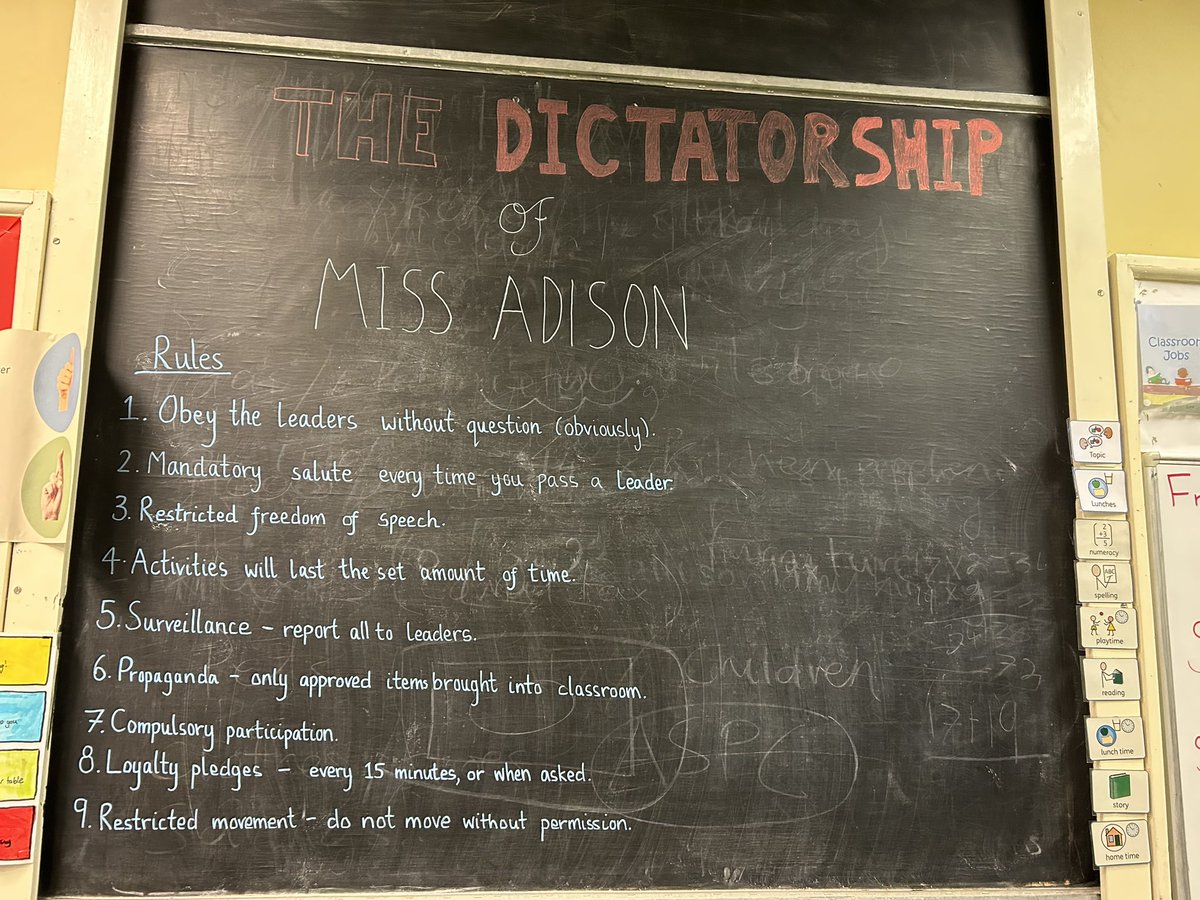 THE DICTATORSHIP
of
MISS ADISON
Rules
1. Obey the Leaders without question (obviously).
2. Mandatory salute every time you pass a leader.
3. Restricted freedom of speech.
4. Activities will last the set amount of time.
5. Surveillance - report all to leaders.
6. Propaganda - only approved items brought into classroom.
7. Compulsory participation.
8. Loyalty pledges - every 15 minutes, or when asked.
9. Restricted movement - do not move without permission.
Children
17+19
Classroom
Jobs
Topic
Lunches
numeracy
spelling
playtime
reading
lunch time
story
home time
table